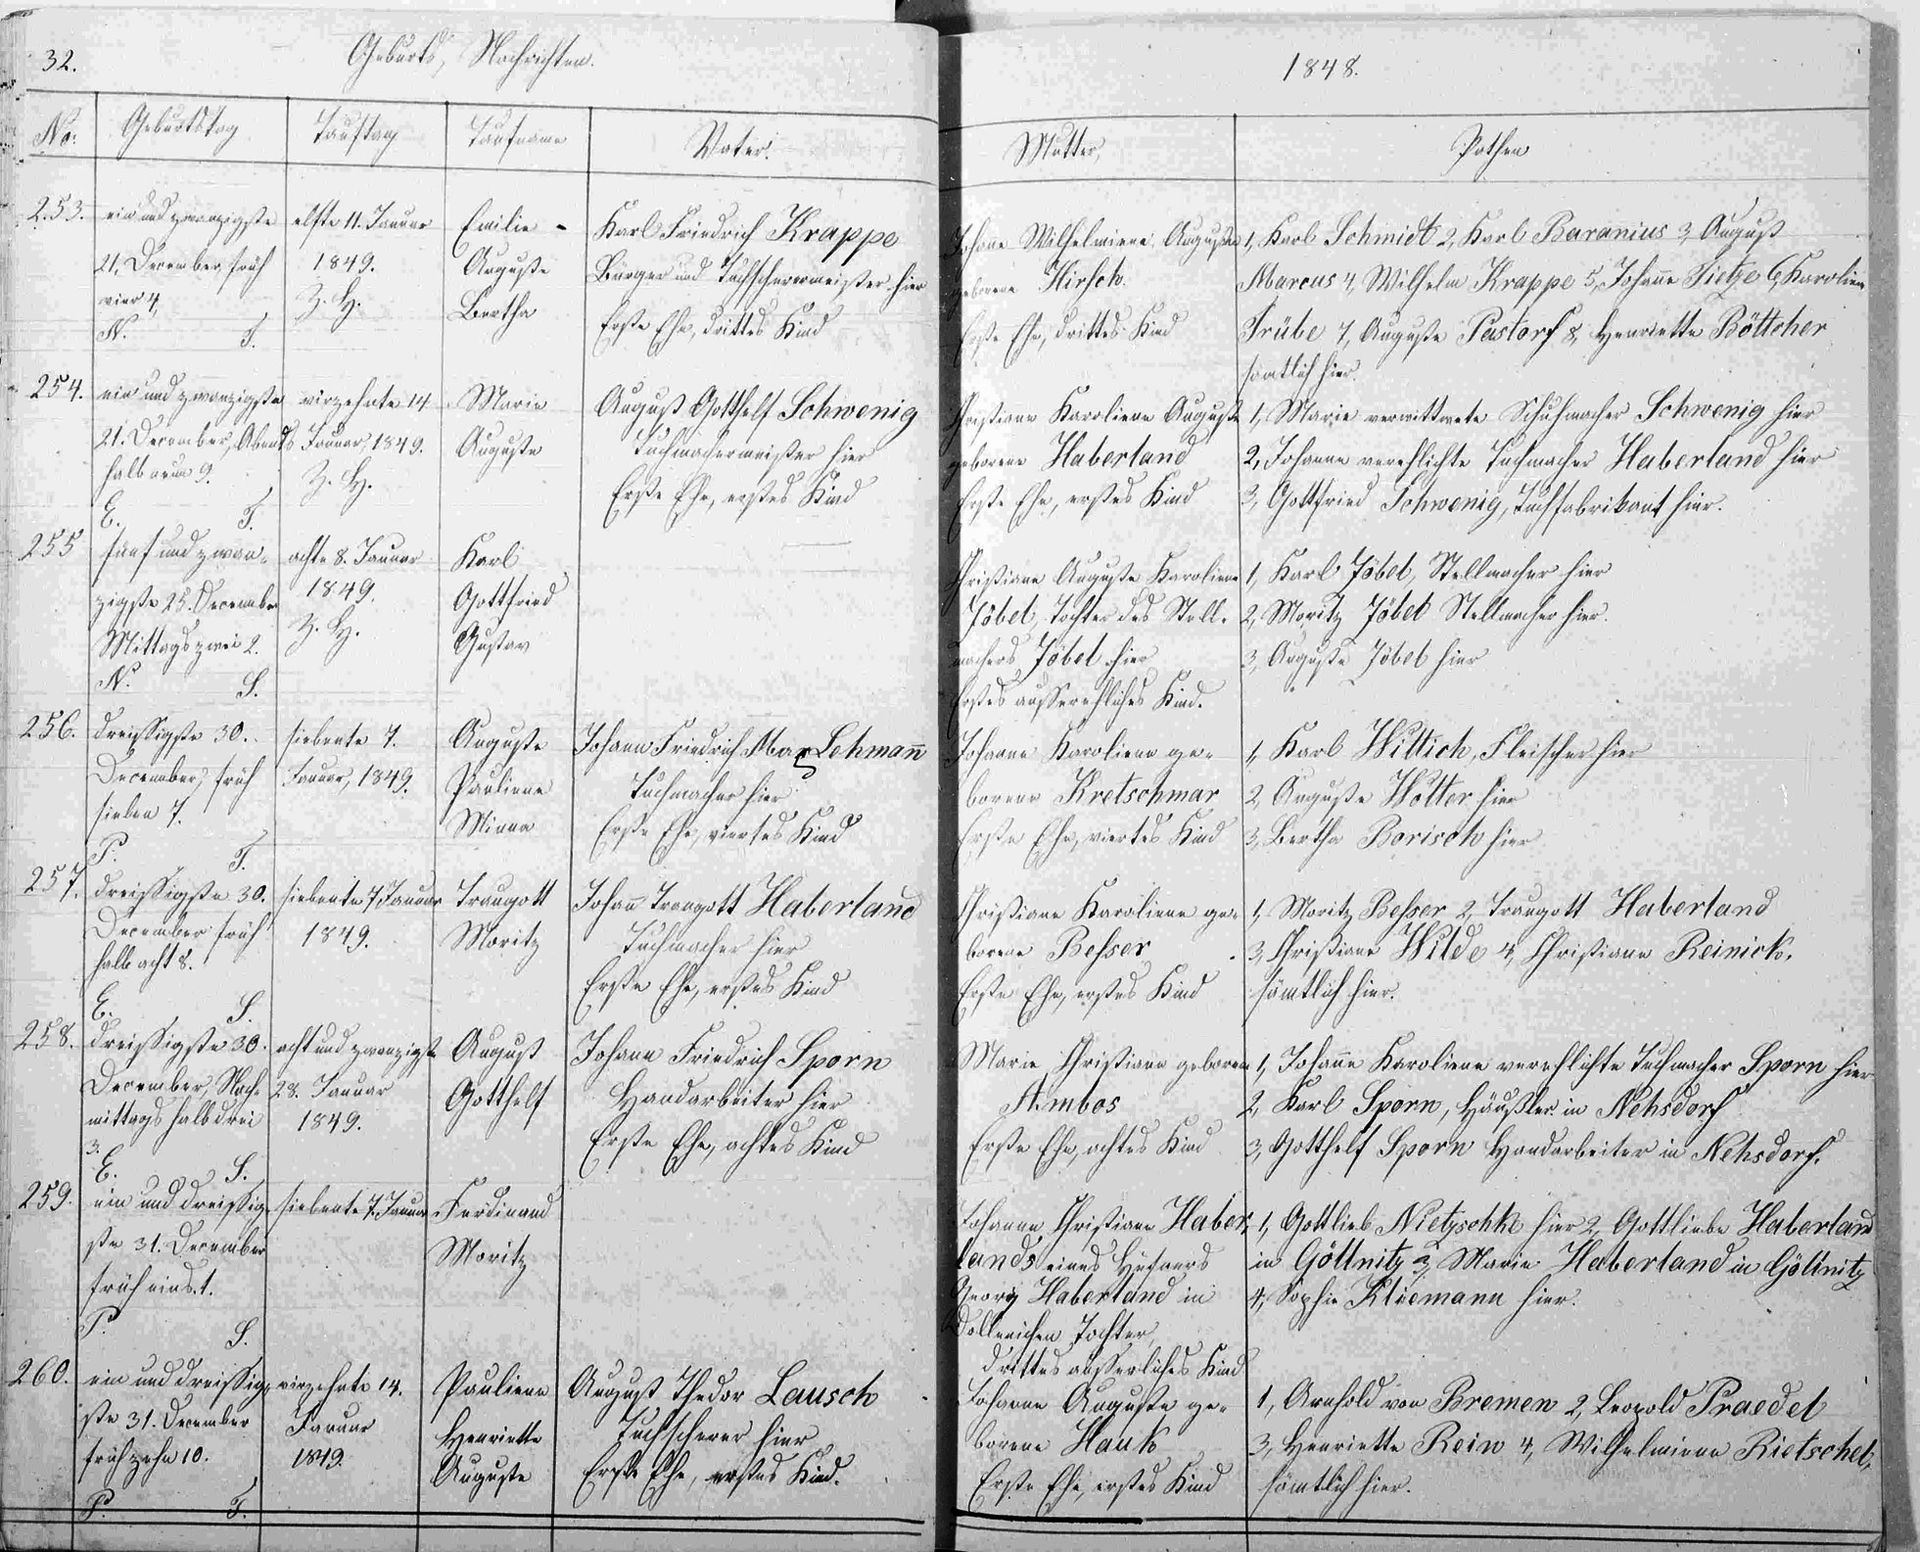 32.
Geburts, Nachrichten.
1848.
No.
Geburtstag
Tauftag
Taufname
Vater.
Mutter,
Pathen
253.
ein und zwanzigste
21, December früh
vier 4,
N. T.
elfte 11. Januar
1849.
Z. H.
Emilie -
Auguste
Bertha
Karl Friedrich Krappe
Bürger und Tuchscherermeister hier
Erste Ehe, drittes Kind
Johane Wilhelmiene Auguste
geborene Hirsch.
Erste Ehe, drittes Kind
1, Karl Schmidt 2, Karl Baranius 3, August
Marcus 4, Wilhelm Krappe 5, Johane Tietze 6, Karoliene
Trübe 7, Auguste Pastorf 8, Henriette Böttcher
sämtlich hier.
254.
ein und zwanzigste
21. December, Abends
halb neun 9.
E. T.
vierzehnte 14
Januar, 1849.
Z. H.
Marie
Auguste
August Gotthelf Schwenig
Tuchmachermeister hier
Erste Ehe, erstes Kind
Christiane Karoliene Auguste
geborene Haberland
Erste Ehe, erstes Kind
1, Marie verwittwete Schuhmacher Schwenig hier
2, Johanne verehlichte Tuchmacher Haberland hier
3, Gottfried Schwenig, Tuchfabrikant hier.
255
fünf und zwan-
zigste 25. December
Mittags zwei 2.
N. S.
achte 8. Januar
1849.
Z. H.
Karl
Gottfried
Gustav
Christiane Auguste Karoliene
Jöbel, Tochter des Stell-
machers Jöbel hier
Erstes ausserehliches Kind.
1, Karl Jöbel, Stellmacher hier
2, Moritz Jöbel Stellmacher hier.
3, Auguste Jöbel hier
256.
dreissigste 30.
December, früh
sieben 7.
P. T.
siebente 7.
Januar, 1849.
Auguste
Pauliene
Minna
Johann Friedrich Max Lehmann
Tuchmacher hier
Erste Ehe, viertes Kind
Johanne Karoliene ge-
borene Kretschmar
Erste Ehe, viertes Kind
1, Karl Wittich, Fleischer hier
2, Auguste Wolter hier
3, Bertha Borisch hier
257.
dreissigste 30.
December früh
halb acht 8.
E. S.
siebente 7 Januar
1849.
Traugott
Moritz
Johann Traugott Haberland
Tuchmacher hier
Erste Ehe, erstes Kind
Christiane Karoliene ge-
borene Besser
Erste Ehe, erstes Kind
1, Moritz Besser 2, Traugott Haberland
3, Christiane Wilde 4, Christiane Reinick.
sämtlich hier.
258.
dreissigste 30.
December, Nach-
mittags halb drei
3.
E. S.
acht und zwanzigste
28. Januar
1849.
August
Gotthelf
Johann Friedrich Sporn
Handarbeiter hier
Erste Ehe, achtes Kind
Marie Christiane geborene
Ambos
Erste Ehe, achtes Kind
1, Johane Karoliene verehlichte Tuchmacher Sporn hier
2, Karl Sporn, Häußler in Nehsdorf
3, Gotthelf Sporn Handarbeiter in Nehsdorf.
259.
ein und dreissig-
ste 31. December
früh eins 1.
P. S.
siebente 7. Januar
Ferdinand
Moritz
Johanne Christiane Haber-
lands eines Hüfners
Georg Haberland in
Dollenchen Tochter,
drittes ausserliches Kind
1, Gottlieb Nietzschke hier 2, Gottliebe Haberland
in Göllnitz 3, Marie Haberland in Göllnitz
4, Sophie Kliemann hier.
260.
ein und dreissig-
ste 31. December
früh zehn 10.
P. T.
vierzehnte 14.
Januar
1849.
Pauliene
Henriette
Auguste
August Thedor Lausch
Tuchscherer hier
Erste Ehe, erstes Kind.
Johanne Auguste ge-
borene Hauk
Erste Ehe, erstes Kind
1, Arnhold von Bremen 2, Leopold Praedel
3, Henriette Rein 4, Wilhelmiene Rietschel,
sämtlich hier.